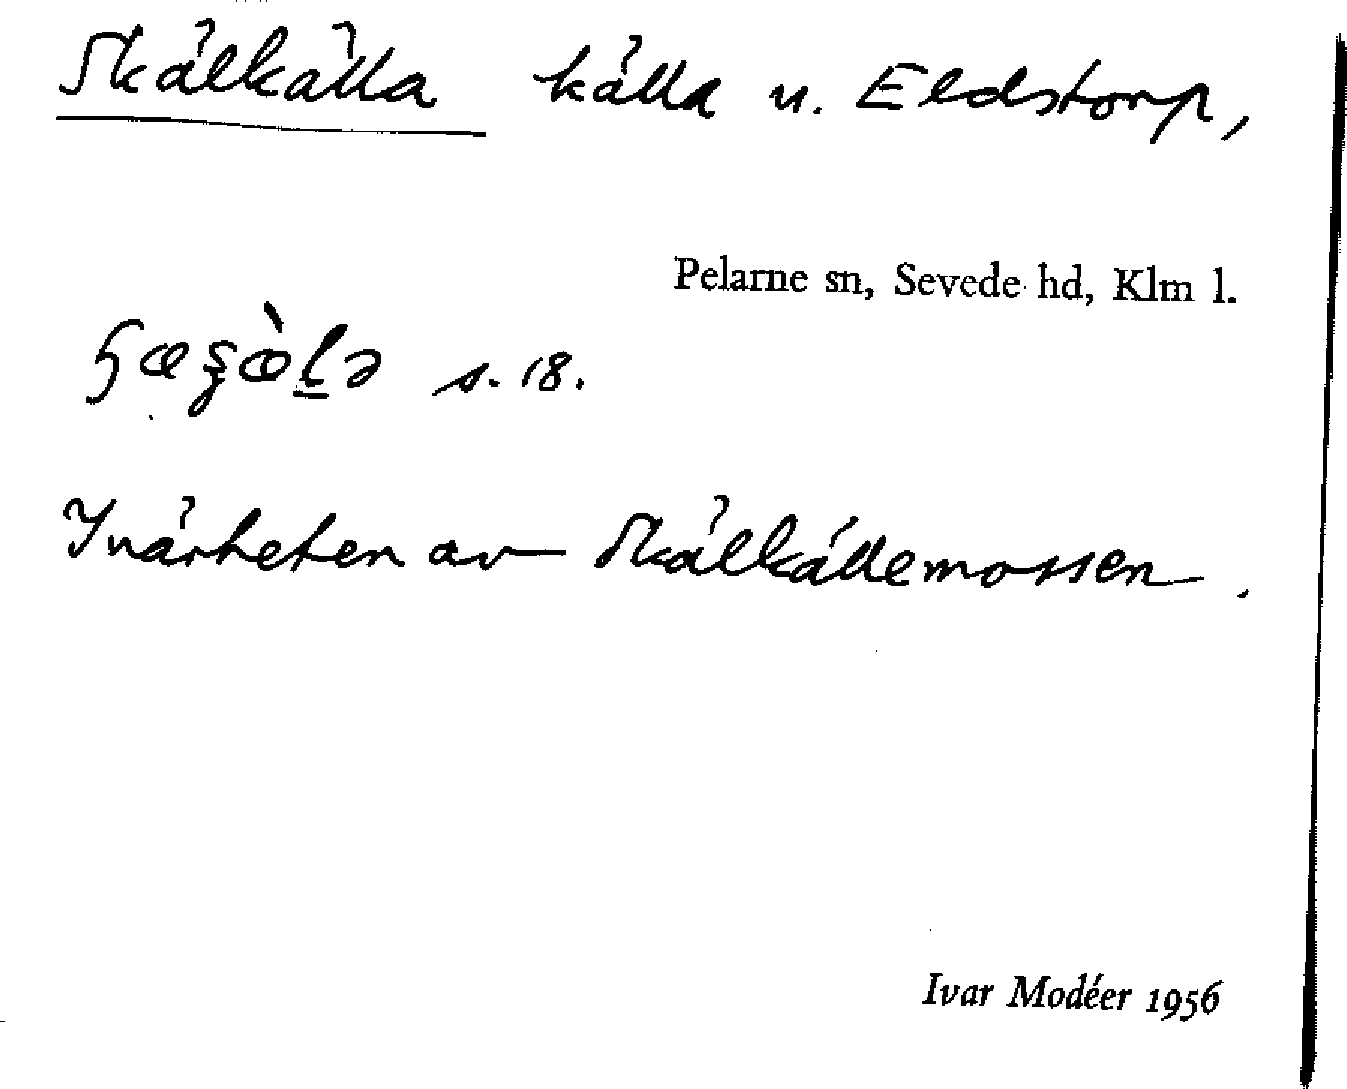 Skälkälla källa u. Eldstorp,
Pelarne sn, Sevede hd, Klm l.
s. 18.
I närheten av Skälkällemossen.
Ivar Modéer 1956